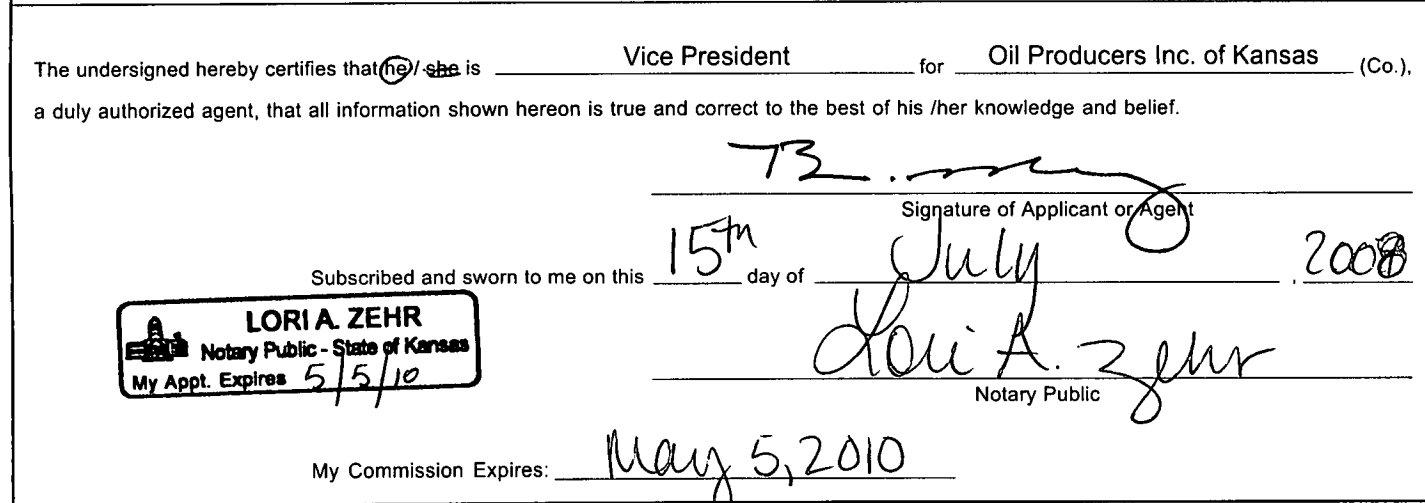 The undersigned hereby certifies that he / she is Vice President for Oil Producers Inc. of Kansas (Co.),
a duly authorized agent, that all information shown hereon is true and correct to the best of his /her knowledge and belief.
Signature of Applicant or Agent
Subscribed and sworn to me on this 15th day of July , 2008
LORI A. ZEHR
Notary Public - State of Kansas
My Appt. Expires 5/5/10
Lori A. Zehr
Notary Public
My Commission Expires: May 5, 2010